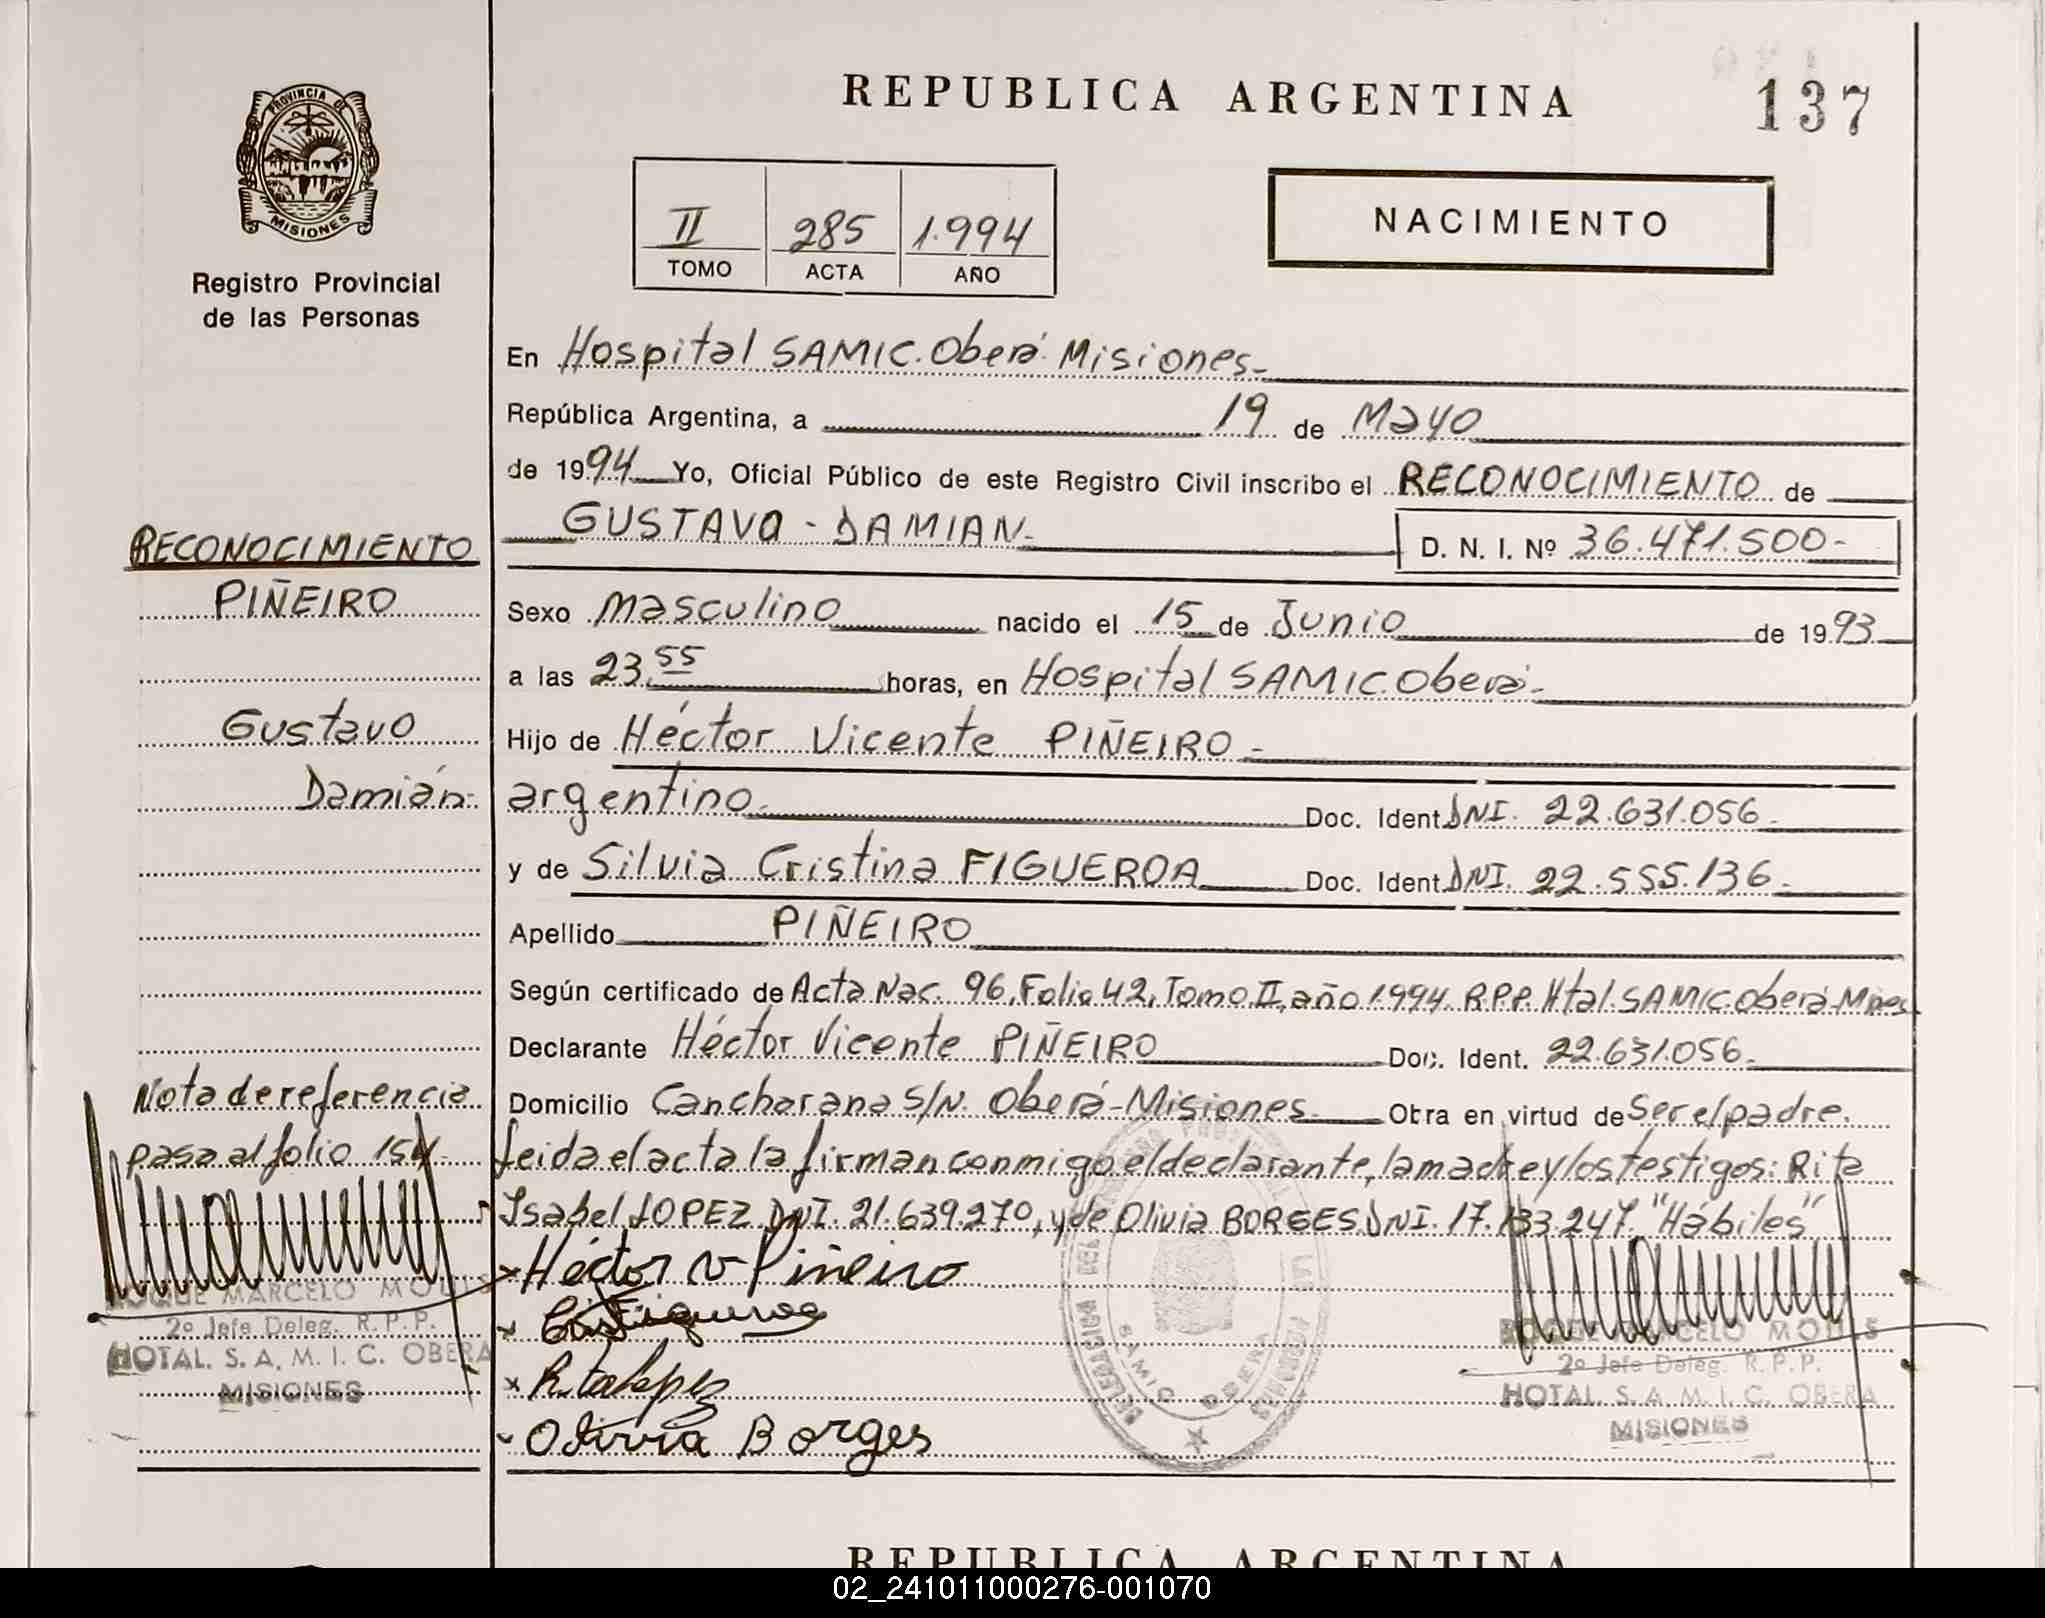 REPUBLICA ARGENTINA
137
PROVINCIA DE
MISIONES
Registro Provincial
de las Personas
II 285 1.994
TOMO ACTA AÑO
NACIMIENTO
En Hospital SAMIC. Oberá. Misiones.-
República Argentina, a 19 de Mayo
de 1994 Yo, Oficial Público de este Registro Civil inscribo el RECONOCIMIENTO de
GUSTAVO - DAMIAN.-
D. N. I. Nº 36.471.500-
Sexo Masculino nacido el 15 de Junio de 1993
a las 23.55 horas, en Hospital SAMIC. Oberá.-
Hijo de Héctor Vicente PIÑEIRO.-
argentino. Doc. Ident. DNI. 22.631.056.-
y de Silvia Cristina FIGUEROA Doc. Ident. DNI. 22.555.136.-
Apellido PIÑEIRO
Según certificado de Acta Nac. 96, Folio 42, Tomo II, año 1994. R.P.P. Htal. SAMIC. Oberá-Mnes.
Declarante Héctor Vicente PIÑEIRO Doc. Ident. 22.631.056.-
Domicilio Cancharana S/N. Oberá-Misiones. Obra en virtud de Ser el padre.
Leida el acta la firman conmigo el declarante, la madre y los testigos: Rita
Isabel LOPEZ DNI. 21.639.270, y de Olivia BORGES DNI. 17.133.247. "Hábiles"
x Héctor V Piñeiro
x Figueroa
x Rita Lopez
Olivia Borges
RECONOCIMIENTO
PIÑEIRO
Gustavo
Damián.-
Nota de referencia
pasa al folio 154.-
ROQUE MARCELO
2º Jefe Deleg. R.P.P.
HOTAL. S. A. M. I. C. OBERA
MISIONES
DELEGACION
LAS PERSONAS
SAMIC OBERA
ROQUE MARCELO
2º Jefe Deleg. R.P.P.
HOTAL. S. A. M. I. C. OBERA
MISIONES
REPUBLICA ARGENTINA
02_241011000276-001070